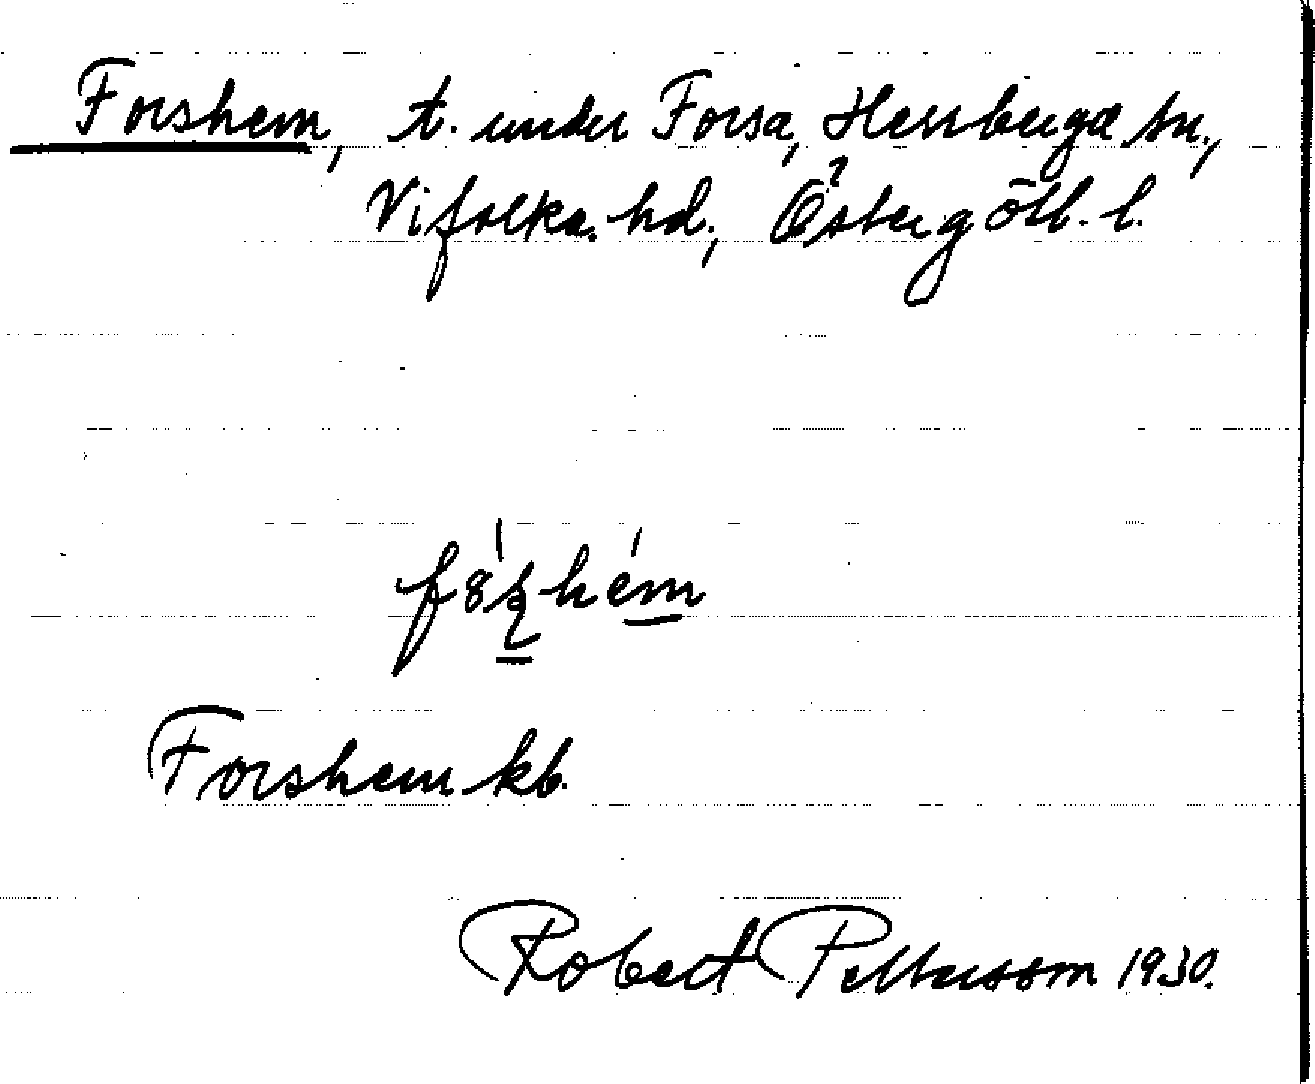 Forshem, t. under Forsa, Herrberga sn.,
Vifolka hd., Östergötl. l.
Forshem kb.
Robert Pettersson 1930.